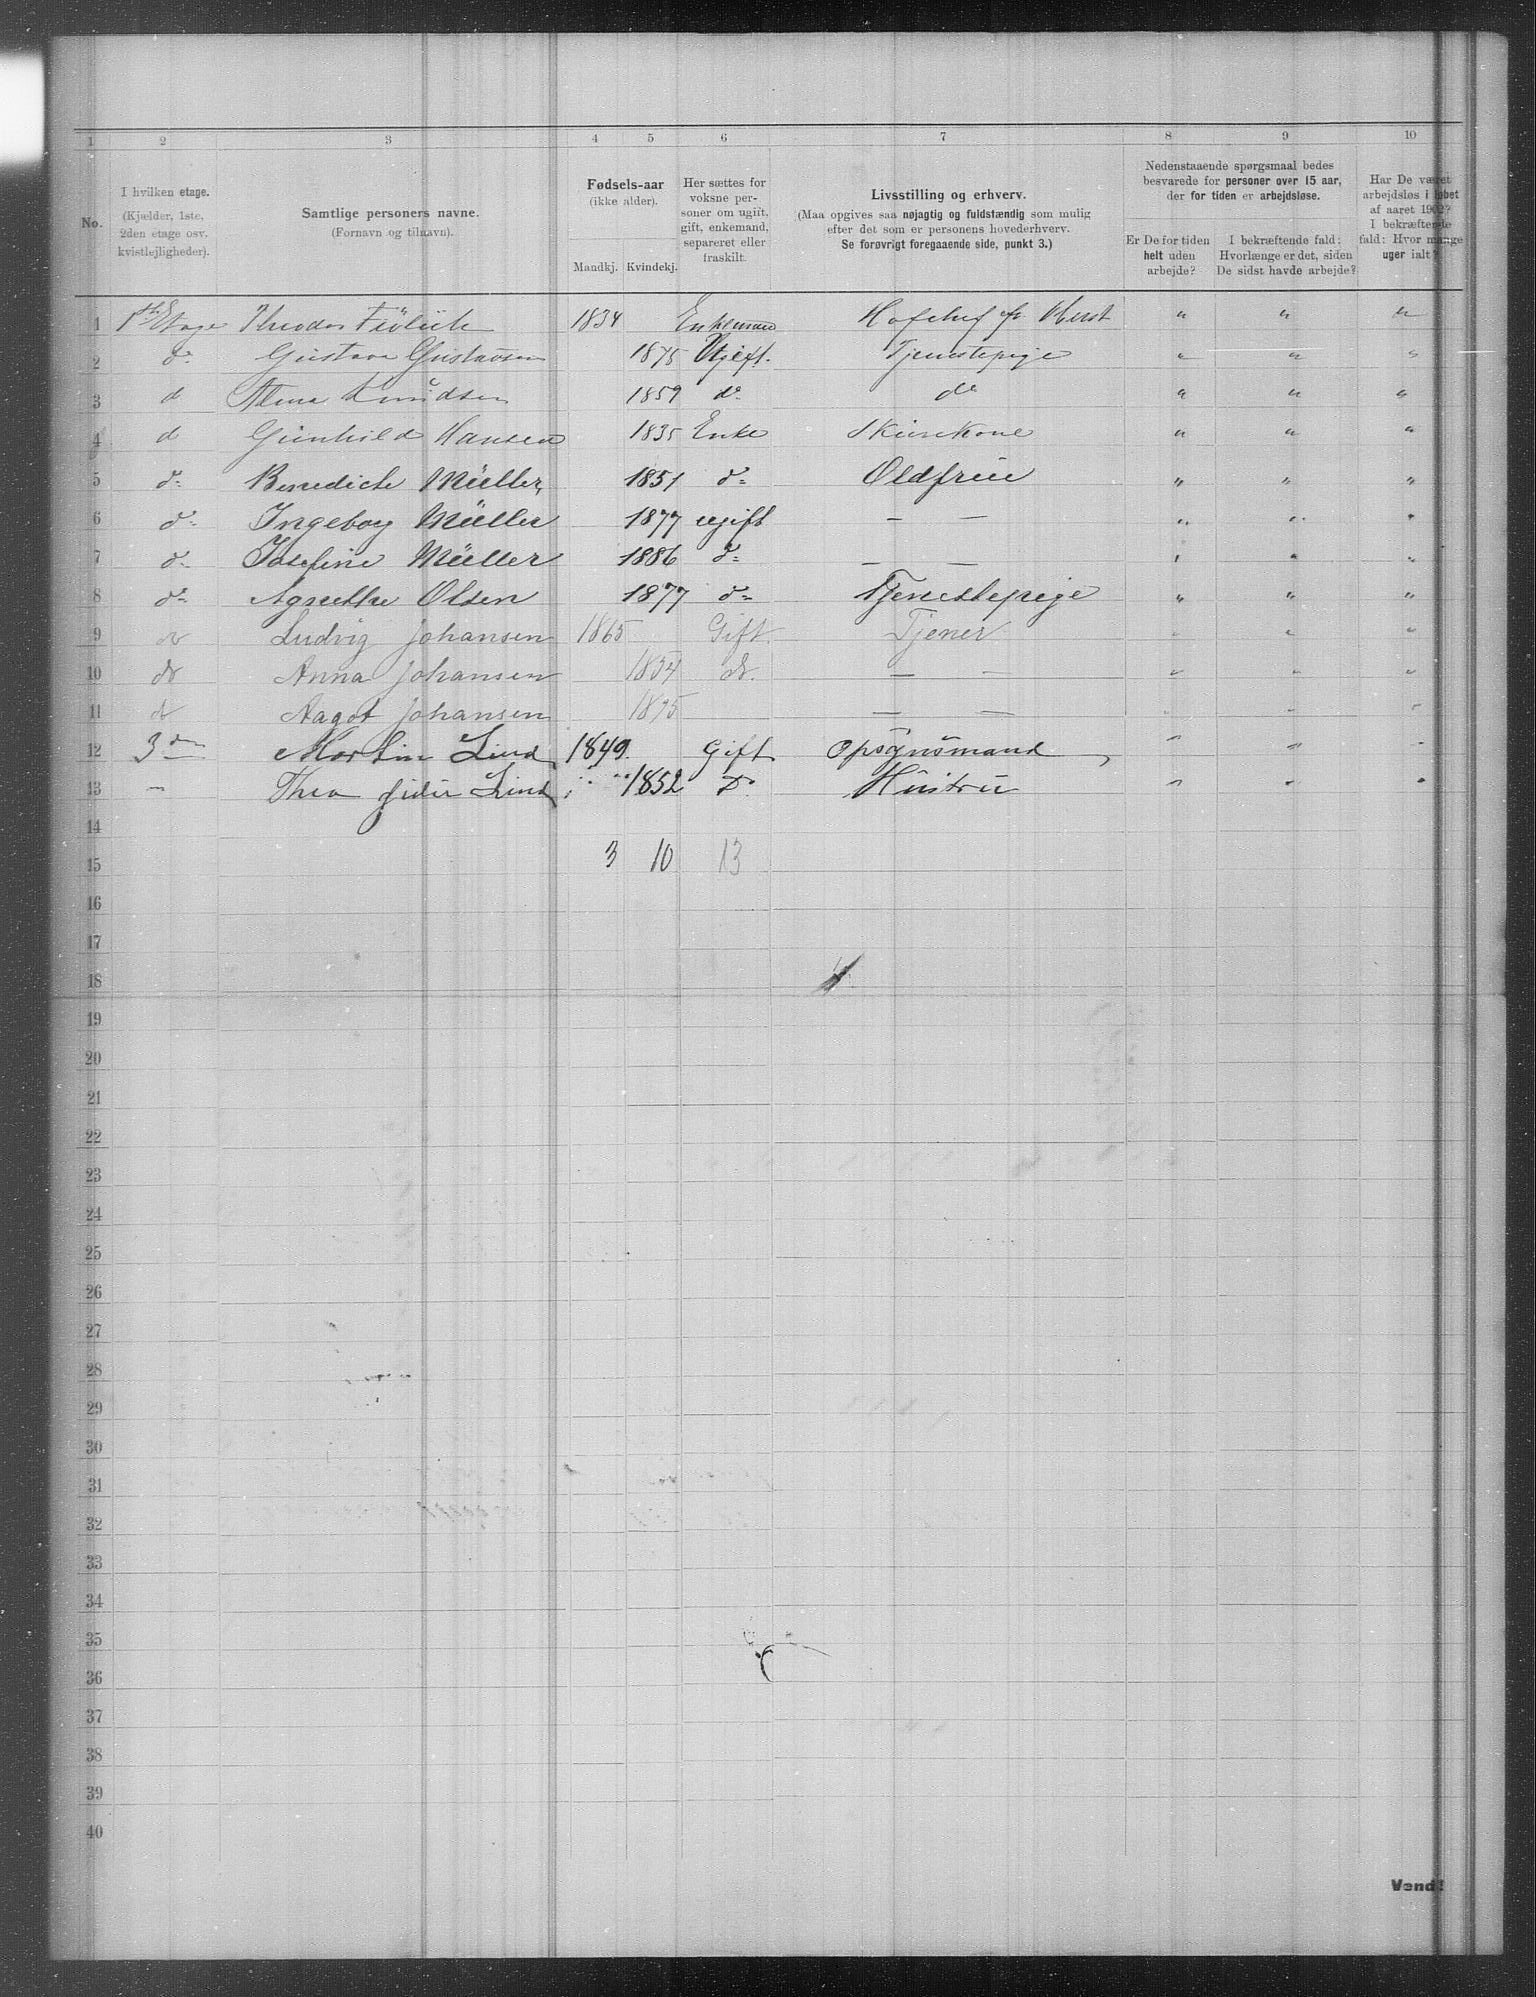 1 2 3 4 5 6 7 8 9 10
No.
I hvilken etage.
(Kjælder, 1ste,
2den etage osv.
kvistlejligheder).
Samtlige personers navne.
(Fornavn og tilnavn).
Fødsels-aar
(ikke alder).
Mandkj. Kvindekj.
Her sættes for
voksne per-
soner om ugift,
gift, enkemand,
separeret eller
fraskilt.
Livsstilling og erhverv.
(Maa opgives saa nøjagtig og fuldstændig som mulig
efter det som er personens hovederhverv.
Se forøvrigt foregaaende side, punkt 3.)
Nedenstaaende spørgsmaal bedes
besvarede for personer over 15 aar,
der for tiden er arbejdsløse.
Er De for tiden
helt uden
arbejde?
I bekræftende fald:
Hvorlænge er det, siden
De sidst havde arbejde?
Har De været
arbejdsløs i løbet
af aaret 1902?
I bekræftende
fald: Hvor mange
uger ialt?
1 1ste Etage Theodor Frölich 1834 Enkemand Hofchef Oberst " " "
2 do Gustava Gustavsen 1875 Ugift. Tjenestepige " " "
3 d Knudsen 1859 do do " " "
4 d Gunhild Hansen 1835 Enke Skurekone " " "
5 do Benedicte Müller, 1851 do Oldfrue " " "
6 do Ingeborg Müller 1877 ugift — — " " "
7 do Josefine Müller 1886 do — — " " "
8 do Agnethe Olsen 1877 do Tjenestepige " " "
9 do Ludvig Johansen 1865 Gift. Tjener " " "
10 do Anna Johansen 1854 do. — — " " "
11 do Aagot Johansen 1895 — — " " "
12 3den Martin Lind 1849. Gift Opsynsmand " " "
13 — Thea Lind, 1852 Do Hustru " " "
14
15 3 10 13
16
17
18
19
20
21
22
23
24
25
26
27
28
29
30
31
32
33
34
35
36
37
38
39
40
Vend!